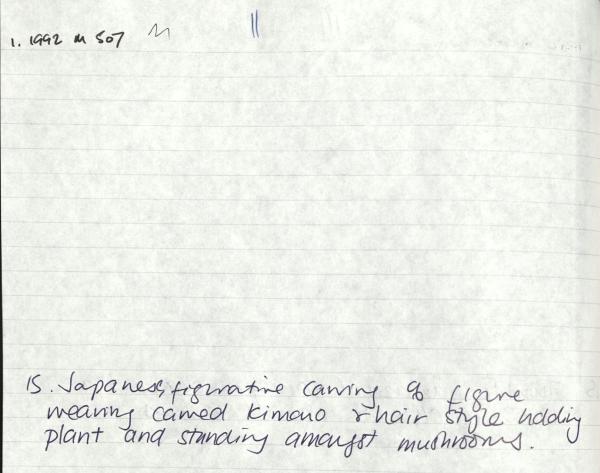 1. 1992 M 507 M
15. Japanese, figurative carving of figure
wearing carved kimono & hair style holding
plant and standing amongst mushrooms.